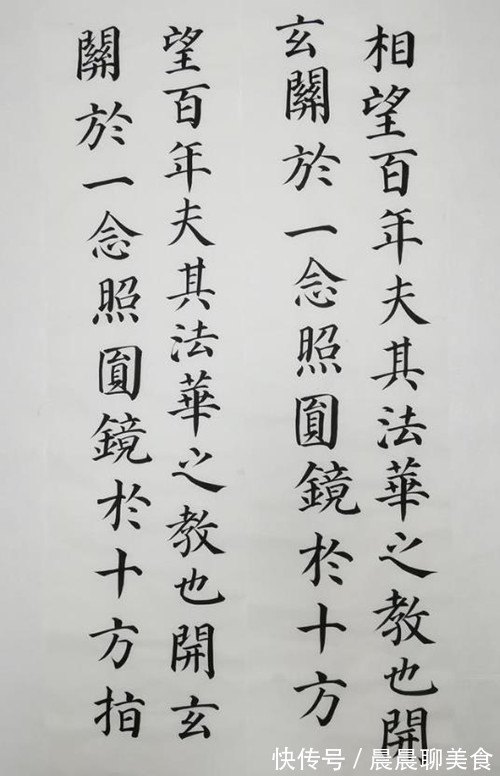 相望百年夫其法華之教也開
玄關於一念照圓鏡於十方
望百年夫其法華之教也開玄
關於一念照圓鏡於十方指
快传号／晨晨聊美食